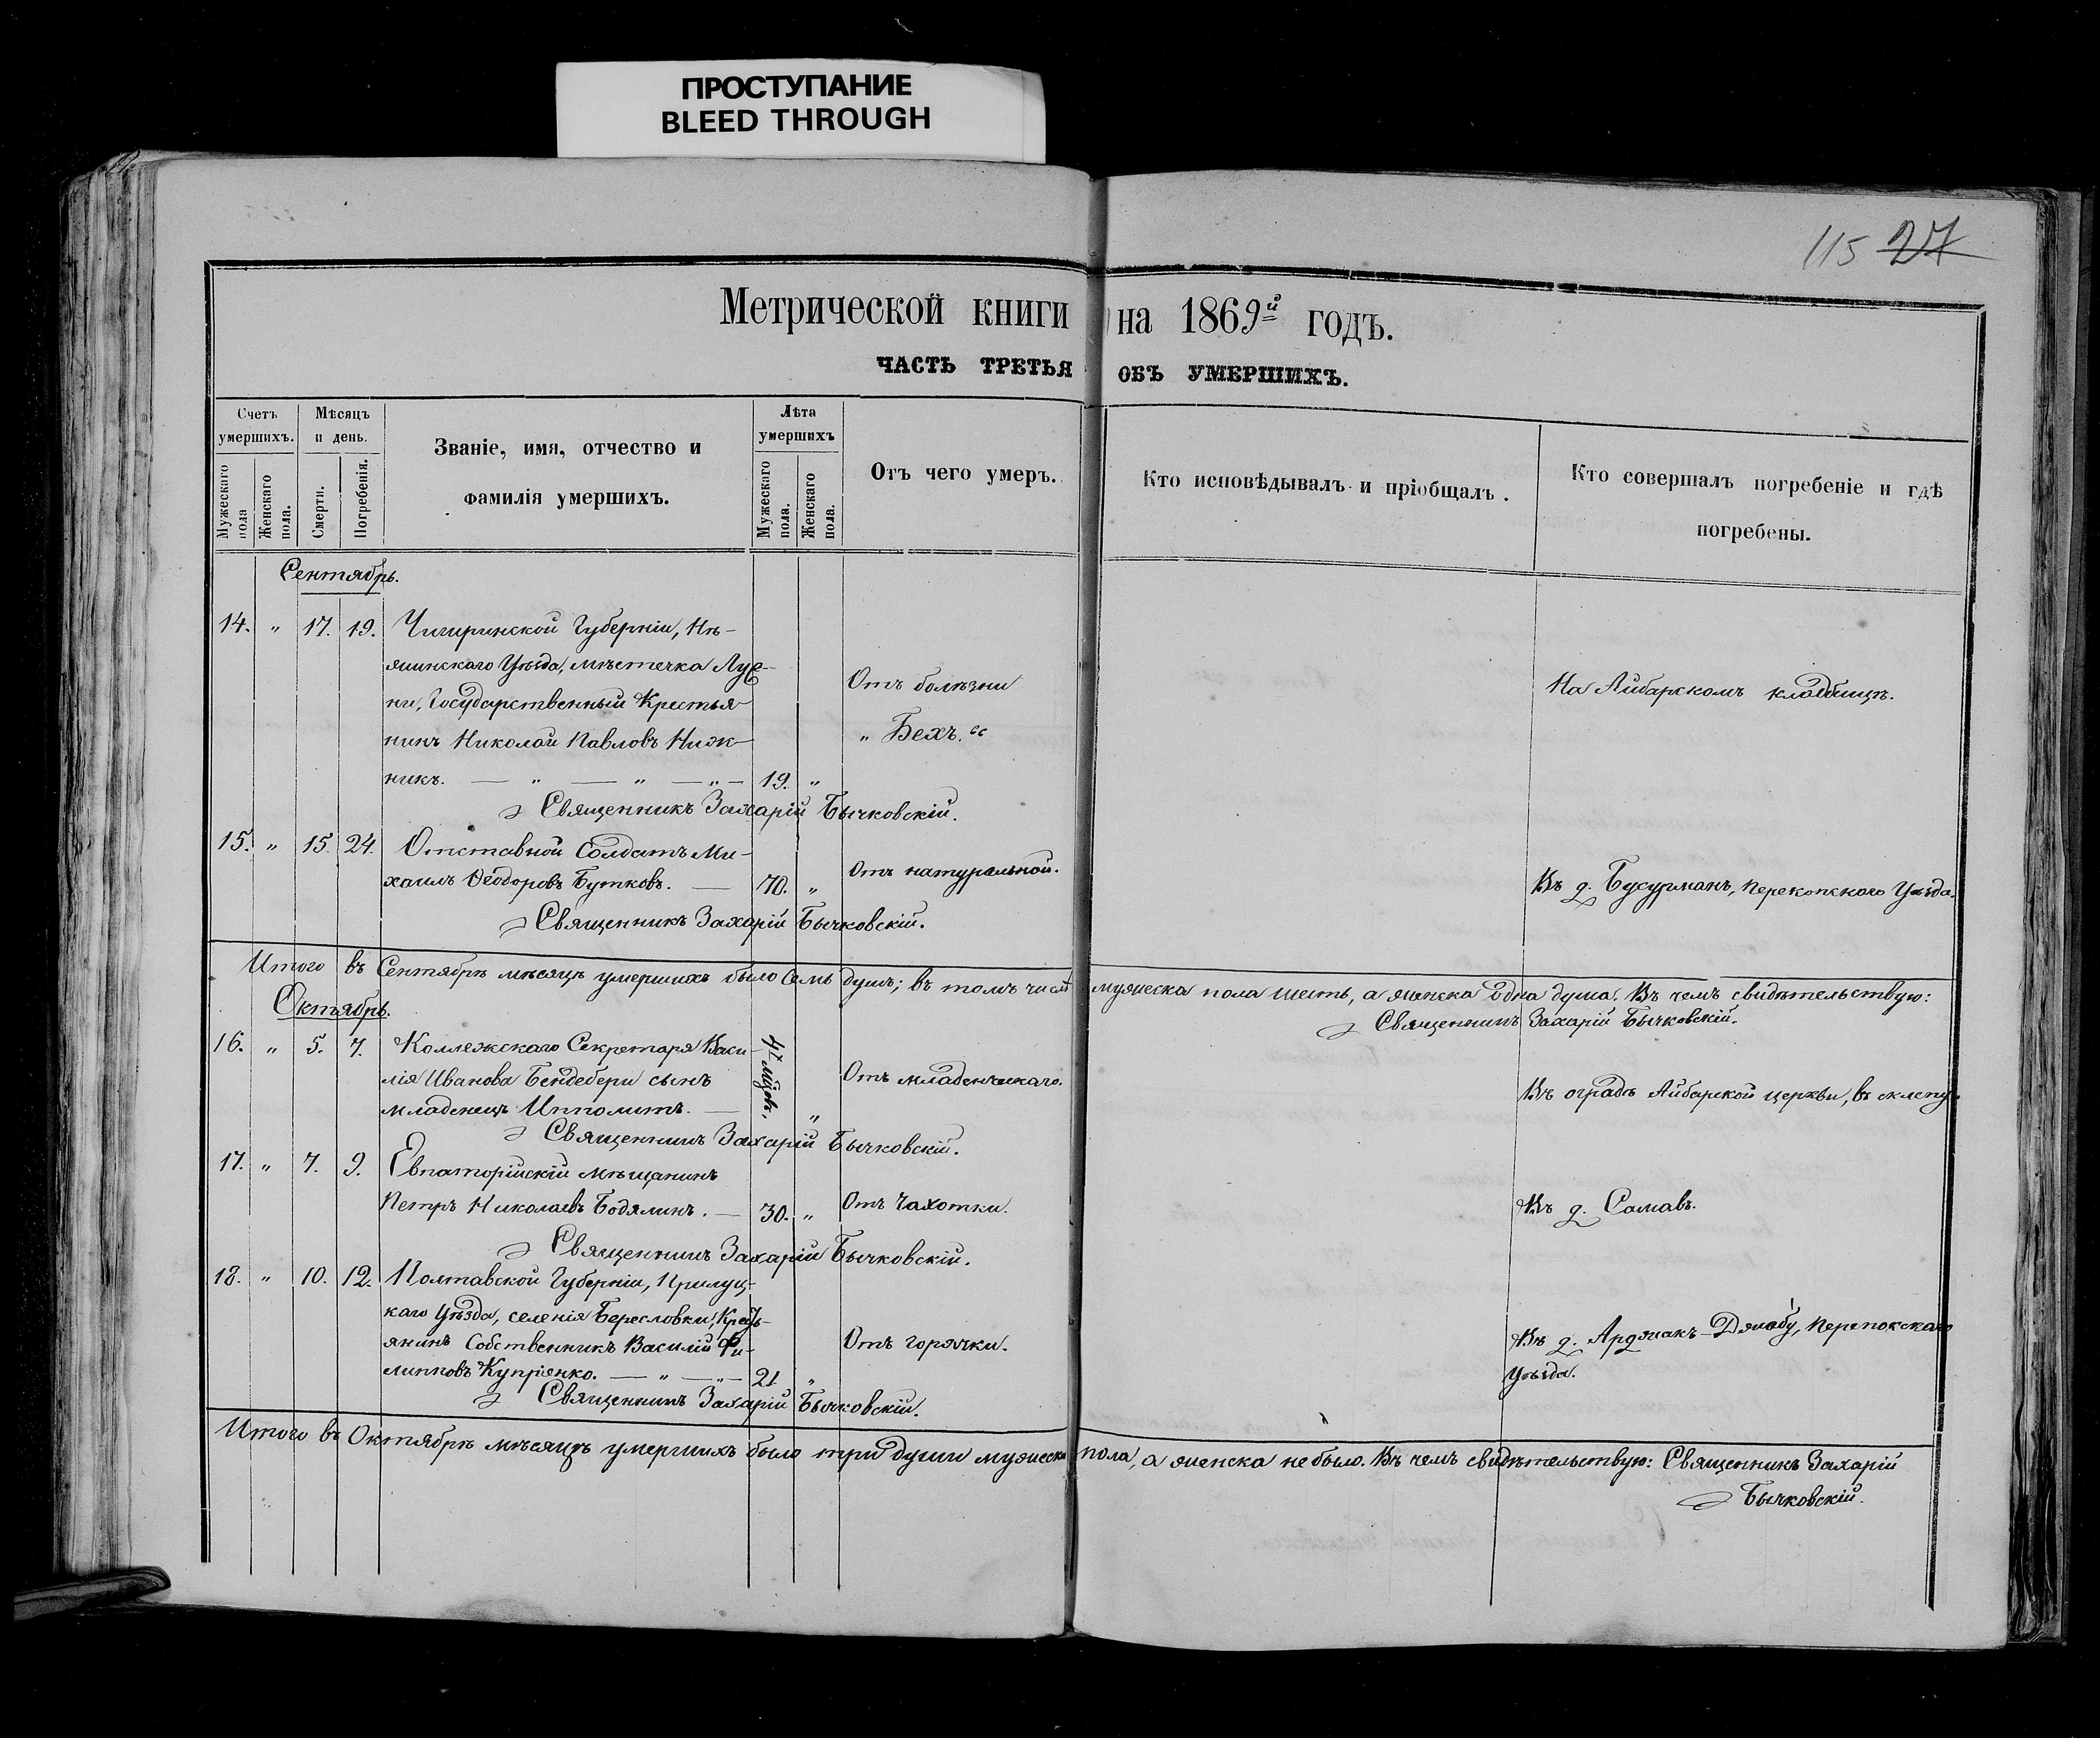 ПРОСТУПАНИЕ
BLEED THROUGH
115 27
Метрической книги на 1869й годъ.
ЧАСТЬ ТРЕТЬЯ ОБЪ УМЕРШИХЪ.
Счетъ умершихъ.
Мѣсяцъ и день.
Званіе, имя, отчество и
фамилія умершихъ.
Лѣта умершихъ
Отъ чего умеръ.
Кто исповѣдывалъ и пріобщалъ.
Кто совершалъ погребеніе и гдѣ
погребены.
Мужескаго пола
Женскаго пола.
Смерти.
Погребенія.
Мужескаго пола.
Женскаго пола.
Сентябрь.
14. " 17. 19. Чигиринской Губерніи, Нѣ-
жинскаго Уѣзда, мѣстечка
ни, Государственный Крестья-
нинъ Николай Павловъ Ниж-
никъ. — " — " — " — 19. "
Отъ болѣзни
" Бехъ. "
На Айбарскомъ кладбищѣ.
Священникъ Захарій Бычковскій.
15. " 15. 24. Отставной Солдатъ Ми-
хаилъ Ѳеодоровъ Бутковъ. — 70. "
Отъ натуральной.
Въ д. Бусурманъ, Перекопскаго Уѣзда.
Священникъ Захарій Бычковскій.
Итого въ Сентябрѣ мѣсяцѣ умершихъ было семь душъ; въ томъ числѣ мужеска пола шесть, а женска одна душа. Въ чемъ свидѣтельствую:
Священникъ Захарій Бычковскій.
Октябрь.
16. " 5. 7. Коллежскаго Секретаря Васи-
лія Иванова Бендебери сынъ
младенецъ Ипполитъ. — 4х мѣсц. "
Отъ младенческаго.
Въ оградѣ Айбарской церкви, въ склепу.
Священникъ Захарій Бычковскій.
17. " 7. 9. Евпаторійскій мѣщанинъ
Петръ Николаевъ Бодялинъ. — 30. "
Отъ чахотки.
Въ д. Самавъ.
Священникъ Захарій Бычковскій.
18. " 10. 12. Полтавской Губерніи, Прилуц-
каго Уѣзда, селенія Бересловки, Кресть-
янинъ Собственникъ Василій Фи-
липповъ Купріенко. — " — " — 21 "
Отъ горячки.
Въ д. Арджакъ-Джабу, Перекопскаго
Уѣзда.
Священникъ Захарій Бычковскій.
Итого въ Октябрѣ мѣсяцѣ умершихъ было три души мужеска пола, а женска не было. Въ чемъ свидѣтельствую: Священникъ Захарій
Бычковскій.